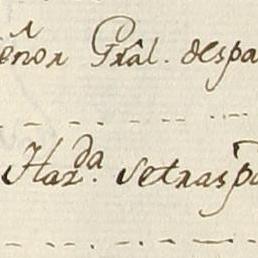 enor Grâl. despa
Har.da setrasp